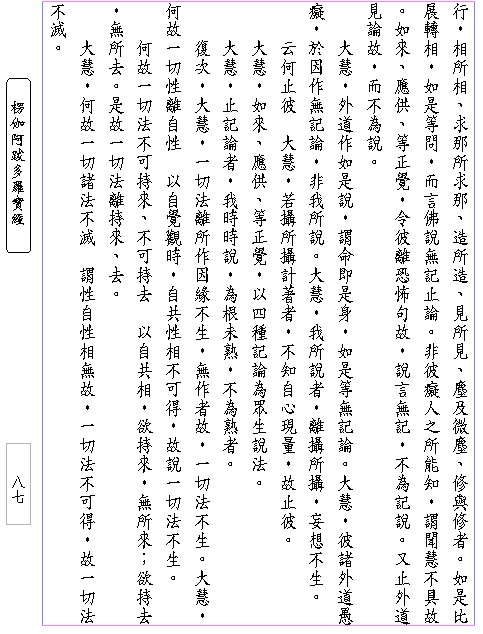 行，相所相、求那所求那、造所造、見所見、塵及微塵、修與修者。如是比
展轉相，如是等問，而言佛說無記止論。非彼癡人之所能知，謂聞慧不具故
。如來、應供、等正覺，令彼離恐怖句故，說言無記，不為記說。又止外道
見論故，而不為說。
大慧，外道作如是說，謂命即是身，如是等無記論。大慧，彼諸外道愚
癡，於因作無記論，非我所說。大慧，我所說者，離攝所攝，妄想不生。
云何止彼 大慧，若攝所攝計著者，不知自心現量，故止彼。
大慧，如來、應供、等正覺，以四種記論為眾生說法。
大慧，止記論者，我時時說，為根未熟，不為熟者。
復次，大慧，一切法離所作因緣不生，無作者故，一切法不生。大慧，
何故一切性離自性 以自覺觀時，自共性相不可得，故說一切法不生。
何故一切法不可持來、不可持去 以自共相，欲持來，無所來；欲持去
，無所去。是故一切法離持來、去。
大慧，何故一切諸法不滅 謂性自性相無故，一切法不可得，故一切法
不滅。
楞伽阿跋多羅寶經
八七